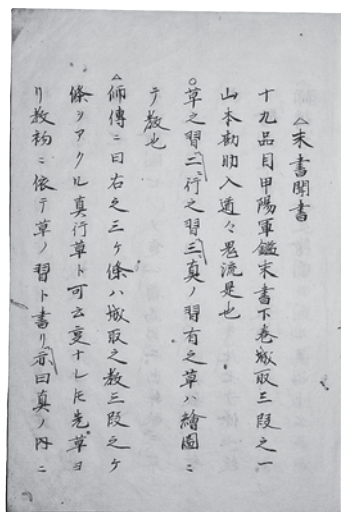 △末書聞書
十九品目甲陽軍鑑末書下巻城取三段之一
山本勘助入道々鬼流是也
○草之習二、行之習三、真ノ習有之草ハ繪圖ニ
テ教也
△師傳ニ曰右之三ケ條ハ城取之教三段之ケ
條ヲアクル真行草ト可云変ナレ𪜈先草ヨ
リ教初ニ依テ草ノ習ト書リ示曰真ノ内ニ